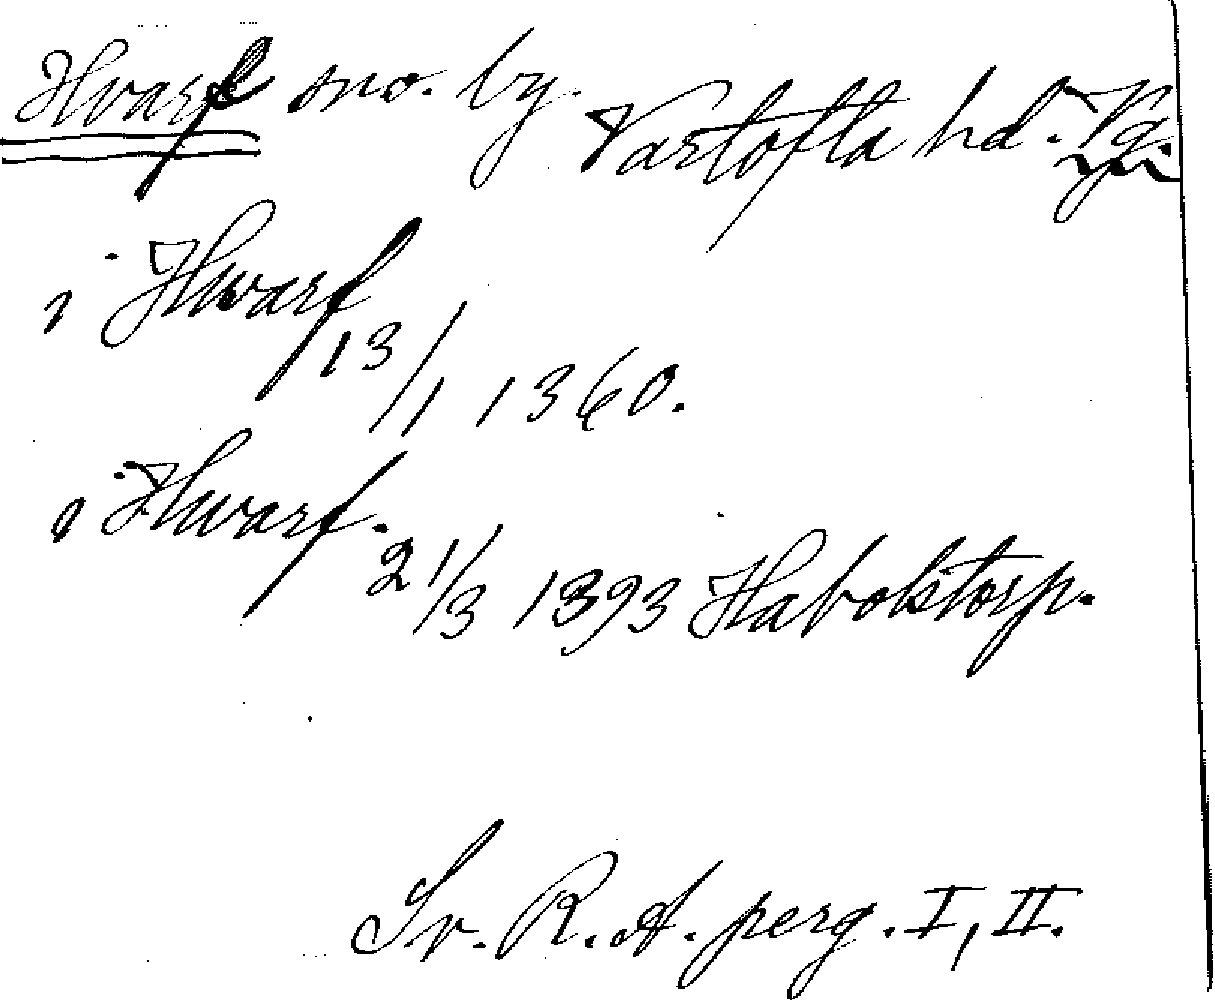 Hvarf sno. by. Vartofta hd. Vg.
i Hwarf
13/1 1360.
i Hwarf.
21/3 1393 Habolstorp.
Sv. R. A. perg. I, II.